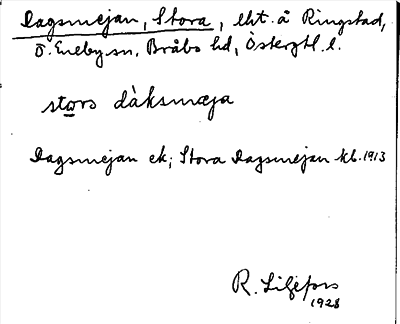 Dagsmejan, Stora, lht. å Ringstad,
Ö. Eneby sn, Bråbo hd, Östergtl. l.
stora dàksmæja
Dagsmejan ek; Stora Dagsmejan kb. 1913
R. Liljefors
1928